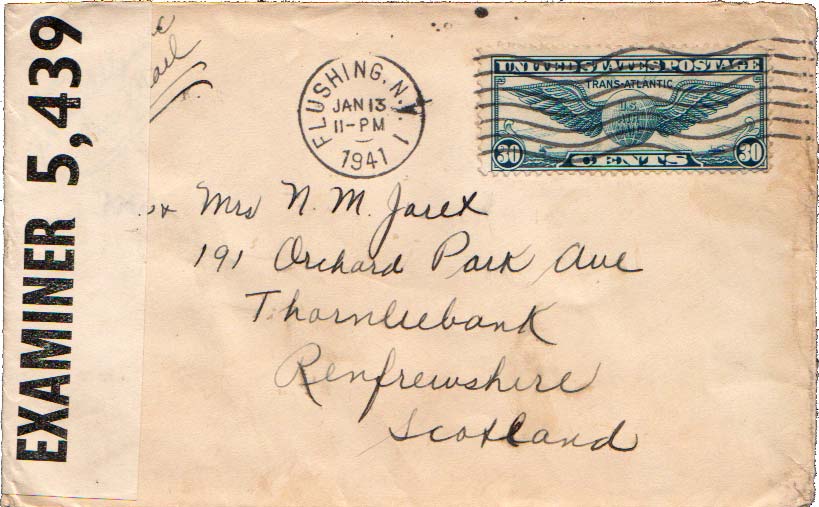 EXAMINER 5,439
FLUSHING, N.Y. 1
JAN 13
11-PM
1941
UNITED STATES POSTAGE
TRANS-ATLANTIC
U.S.
30 CENTS 30
Mrs N. M.
191 Orchard Park Ave
Thornliebank
Renfrewshire
Scotland